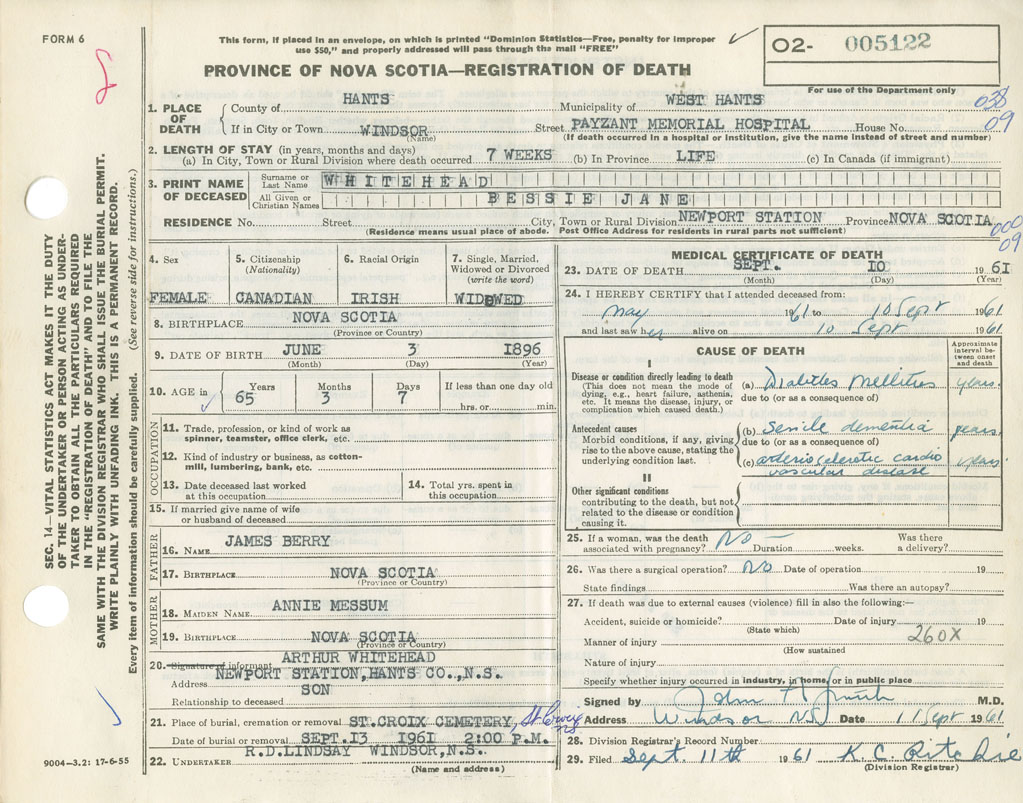 FORM 6
This form, if placed in an envelope, on which is printed "Dominion Statistics—Free, penalty for improper
use $50," and properly addressed will pass through the mail "FREE"
02- 005122
For use of the Department only
PROVINCE OF NOVA SCOTIA—REGISTRATION OF DEATH
SEC. 14—VITAL STATISTICS ACT MAKES IT THE DUTY
OF THE UNDERTAKER OR PERSON ACTING AS UNDER-
TAKER TO OBTAIN ALL THE PARTICULARS REQUIRED
IN THE "REGISTRATION OF DEATH" AND TO FILE THE
SAME WITH THE DIVISION REGISTRAR WHO SHALL ISSUE THE BURIAL PERMIT.
WRITE PLAINLY WITH UNFADING INK. THIS IS A PERMANENT RECORD.
Every item of information should be carefully supplied. (See reverse side for instructions.)
1. PLACE OF DEATH
County of HANTS Municipality of WEST HANTS 038
If in City or Town WINDSOR Street PAYZANT MEMORIAL HOSPITAL House No. 09
(Name) (If death occurred in a hospital or institution, give the name instead of street and number)
2. LENGTH OF STAY (in years, months and days)
(a) In City, Town or Rural Division where death occurred 7 WEEKS (b) In Province LIFE (c) In Canada (if immigrant)
3. PRINT NAME OF DECEASED
Surname or Last Name WHITEHEAD
All Given or Christian Names BESSIE JANE
RESIDENCE No. Street City, Town or Rural Division NEWPORT STATION Province NOVA SCOTIA
(Residence means usual place of abode. Post Office Address for residents in rural parts not sufficient)
000
09
4. Sex
FEMALE
5. Citizenship
(Nationality)
CANADIAN
6. Racial Origin
IRISH
7. Single, Married,
Widowed or Divorced
(write the word)
WIDOWED
8. BIRTHPLACE NOVA SCOTIA
(Province or Country)
9. DATE OF BIRTH JUNE 3 1896
(Month) (Day) (Year)
10. AGE in Years Months Days If less than one day old
65 3 7 hrs. or min.
OCCUPATION
11. Trade, profession, or kind of work as
spinner, teamster, office clerk, etc.
12. Kind of industry or business, as cotton-
mill, lumbering, bank, etc.
13. Date deceased last worked
at this occupation
14. Total yrs. spent in
this occupation
15. If married give name of wife
or husband of deceased
FATHER
16. NAME JAMES BERRY
17. BIRTHPLACE NOVA SCOTIA
(Province or Country)
MOTHER
18. MAIDEN NAME ANNIE MESSUM
19. BIRTHPLACE NOVA SCOTIA
(Province or Country)
20. Signature of informant ARTHUR WHITEHEAD
Address NEWPORT STATION, HANTS CO., N.S.
Relationship to deceased SON
21. Place of burial, cremation or removal ST. CROIX CEMETERY, St. Croix NS
Date of burial or removal SEPT. 13 1961 2:00 P.M.
22. UNDERTAKER R.D. LINDSAY WINDSOR, N.S.
(Name and address)
9004—3.2: 17-6-55
MEDICAL CERTIFICATE OF DEATH
23. DATE OF DEATH SEPT. 10 1961
(Month) (Day) (Year)
24. I HEREBY CERTIFY that I attended deceased from:
May 1961 to 10 Sept 1961
and last saw her alive on 10 Sept 1961
CAUSE OF DEATH
Approximate interval between onset and death
I
Disease or condition directly leading to death
(This does not mean the mode of
dying, e.g., heart failure, asthenia,
etc. It means the disease, injury, or
complication which caused death.)
(a) Diabetes Mellitus years.
due to (or as a consequence of)
Antecedent causes
Morbid conditions, if any, giving
rise to the above cause, stating the
underlying condition last.
(b) Senile dementia years.
due to (or as a consequence of)
(c) arteriosclerotic cardio years.
vascular disease
II
Other significant conditions
contributing to the death, but not
related to the disease or condition
causing it.
25. If a woman, was the death No — Was there
associated with pregnancy? Duration weeks. a delivery?
26. Was there a surgical operation? No Date of operation 19
State findings Was there an autopsy?
27. If death was due to external causes (violence) fill in also the following:—
Accident, suicide or homicide? Date of injury 19
(State which)
Manner of injury 260X
(How sustained
Nature of injury
Specify whether injury occurred in industry, in home, or in public place
Signed by John Smith M.D.
Address Windsor NS Date 11 Sept 1961
28. Division Registrar's Record Number
29. Filed Sept. 11th 1961 K. C. Ritchie
(Division Registrar)